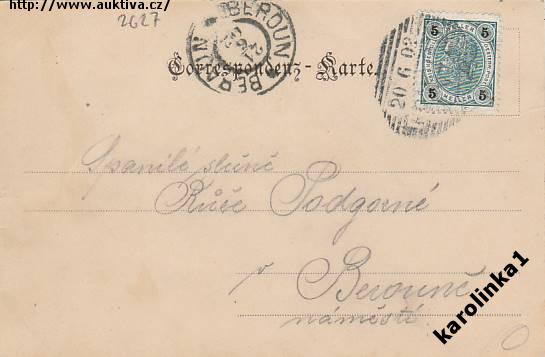 http://www.auktiva.cz/
2627
BEROUN
BERAUN
Correspondenz-Karte.
20 6 02
5 HELLER 5
5 HELLER 5
Spanilé slečně
Růže Podgorné
v Berouně
náměstí
karolinka1